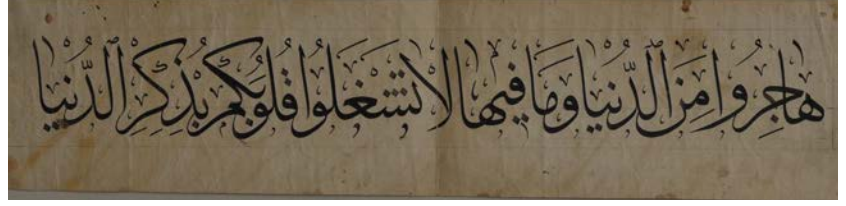 هَاجِرُوا مِنَ الدُّنْيَا وَمَا فِيهَا لَا تَشْغَلُوا قُلُوبَكُمْ بِذِكْرِ الدُّنْيَا